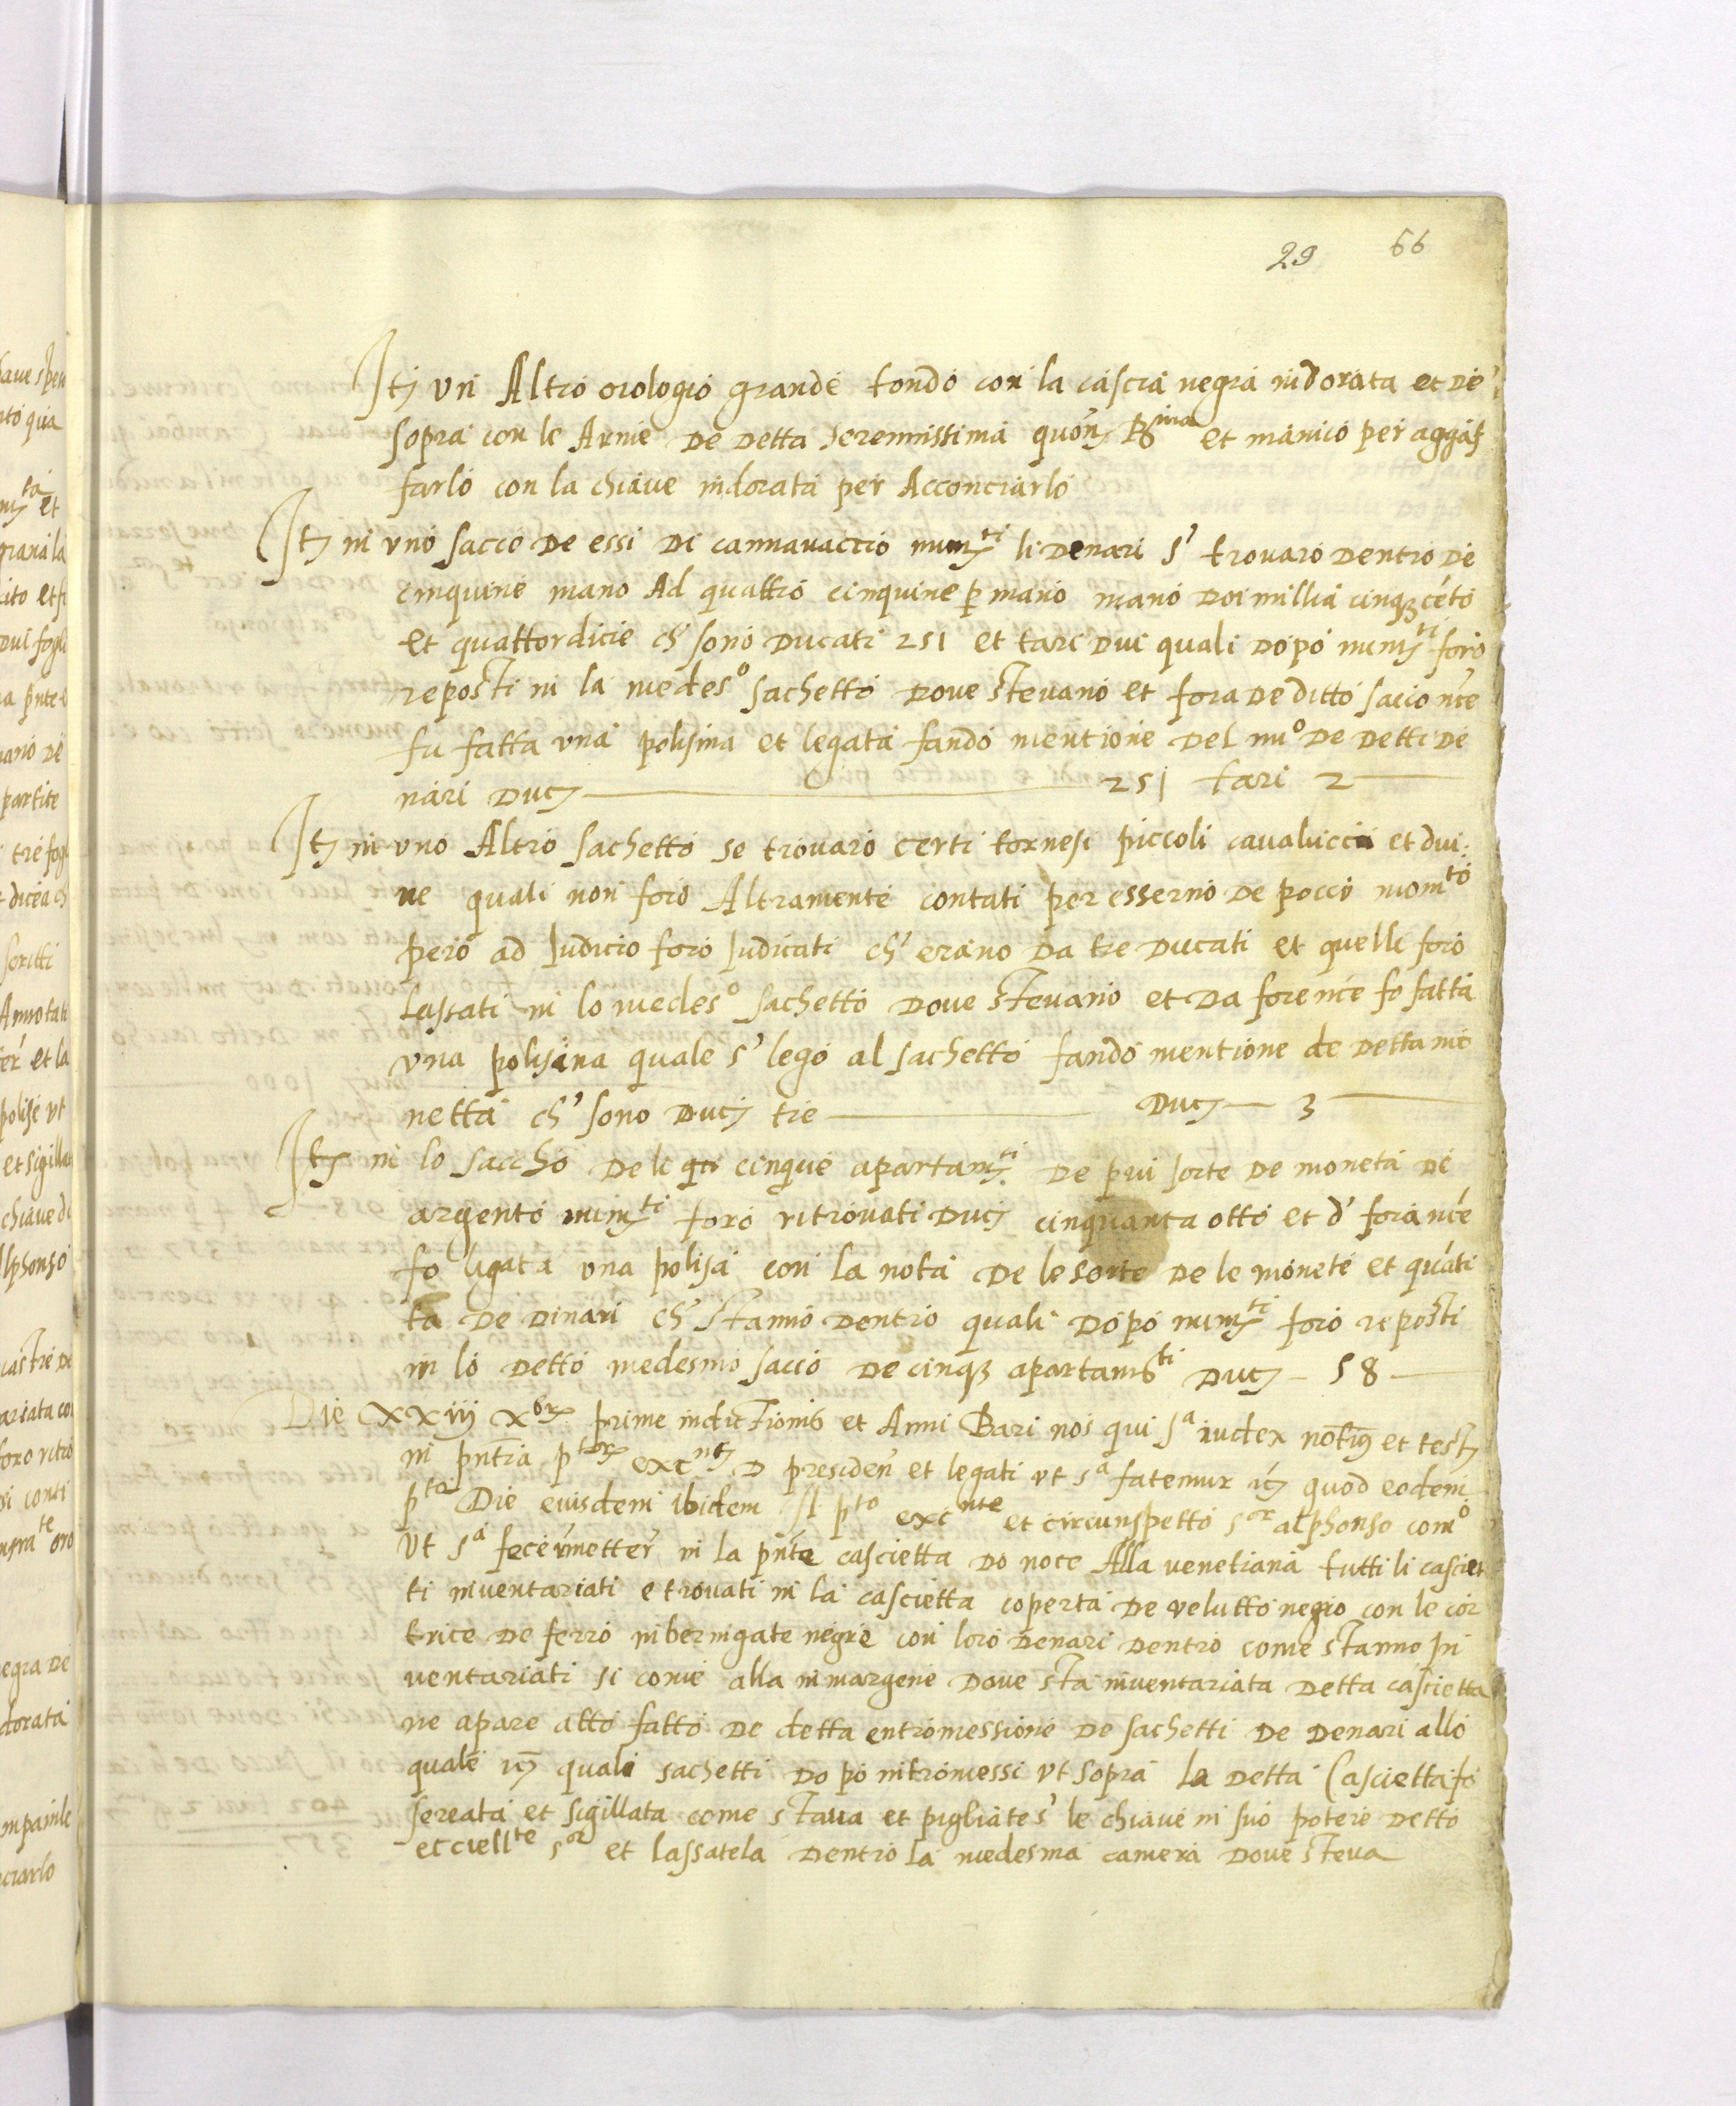 29 66
Itꝫ un Altro orologio grande tondo con la cascia negra indorata et de
sopra con le Arme de detta Serennissima quonꝫ Rᵍⁱⁿᵃ et manico per aggaf
farlo con la chiave indorata per Acconciarlo
Itꝫ in uno sacco de essi di cannavaccio numꝫᵗⁱ li denari s' trovaro dentro de
cinquine mano Ad quattro cinquine p mano mano doi millia cinqꝫ céto
et quattordicie ch' sono Ducati 251 et tari dui quali dopo numꝫᵗⁱ foro
reposti in la medesº sachetto dove stevano et fora de ditto sacco nce
fu fatta una polisina et legata fando mentione del nuº de detti de
nari Ducꝫ 251 tari 2
Itꝫ in uno Altro sachetto se trovaro certi tornesi piccoli cavalucci et dui:
ne quali non foro Altramente contati per esserno de pocco momᵗᵒ
pero ad Iudicio foro Iudicati ch' erano da tre Ducati et quelli foro
Lassati in lo medesº sachetto dove stevano et da fore nce fo fatta
una polisina quale s' legò al sachetto fando mentione de detta mo
netta ch' sono Ducꝫ tre Ducꝫ 3
Itꝫ in lo saccho de li cinque apartamꝫᵗⁱ de piui sorte de moneta de
argento numꝫᵗⁱ foro ritrovati Ducꝫ cinquanta otto et d' fora nce
fo ligata una polisa con la nota de le sorte de le monete et quáti
ta de dinari ch' stanno dentro quali dopo numꝫᵗⁱ foro reposti
in lo detto medesmo sacco de cinqꝫ apartamᵗⁱ Ducꝫ 58
Die xxiij Xbrꝫ prime indictionis et Anni Bari nos qui sᵃ iudex notꝫ et testꝫ
in pntia pᵗᵒʳ excⁿᵗꝫ D presiden et legati ut sᵃ fatemur itꝫ quod eodem
pᵗᵒ Die euisdem ibidem Il pᵗᵒ excⁿᵗᵉ et circunspetto sᵒʳ alphonso comº
Ut sᵃ fecér metter in la pnte cascietta do noce Alla venetiana tutti li casciet
ti inventariati e trovati in la cascietta coperta de velutto negro con le cor
trice de ferro inbernigate negre con loro denari dentro come stanno In
ventariati si come alla in margene dove sta inventariata detta cascietta
ne apare atto fatto de detta entromessione de sachetti de denari allo
quale itꝫ quali sachetti dopo intromessi ut sopra la detta Cascietta fo
serrata et sigillata come stava et pigliates' le chiave in suo potere detto
ecciellᵗᵉ sᵒʳ et lassatela dentro la medesma camera dove steva